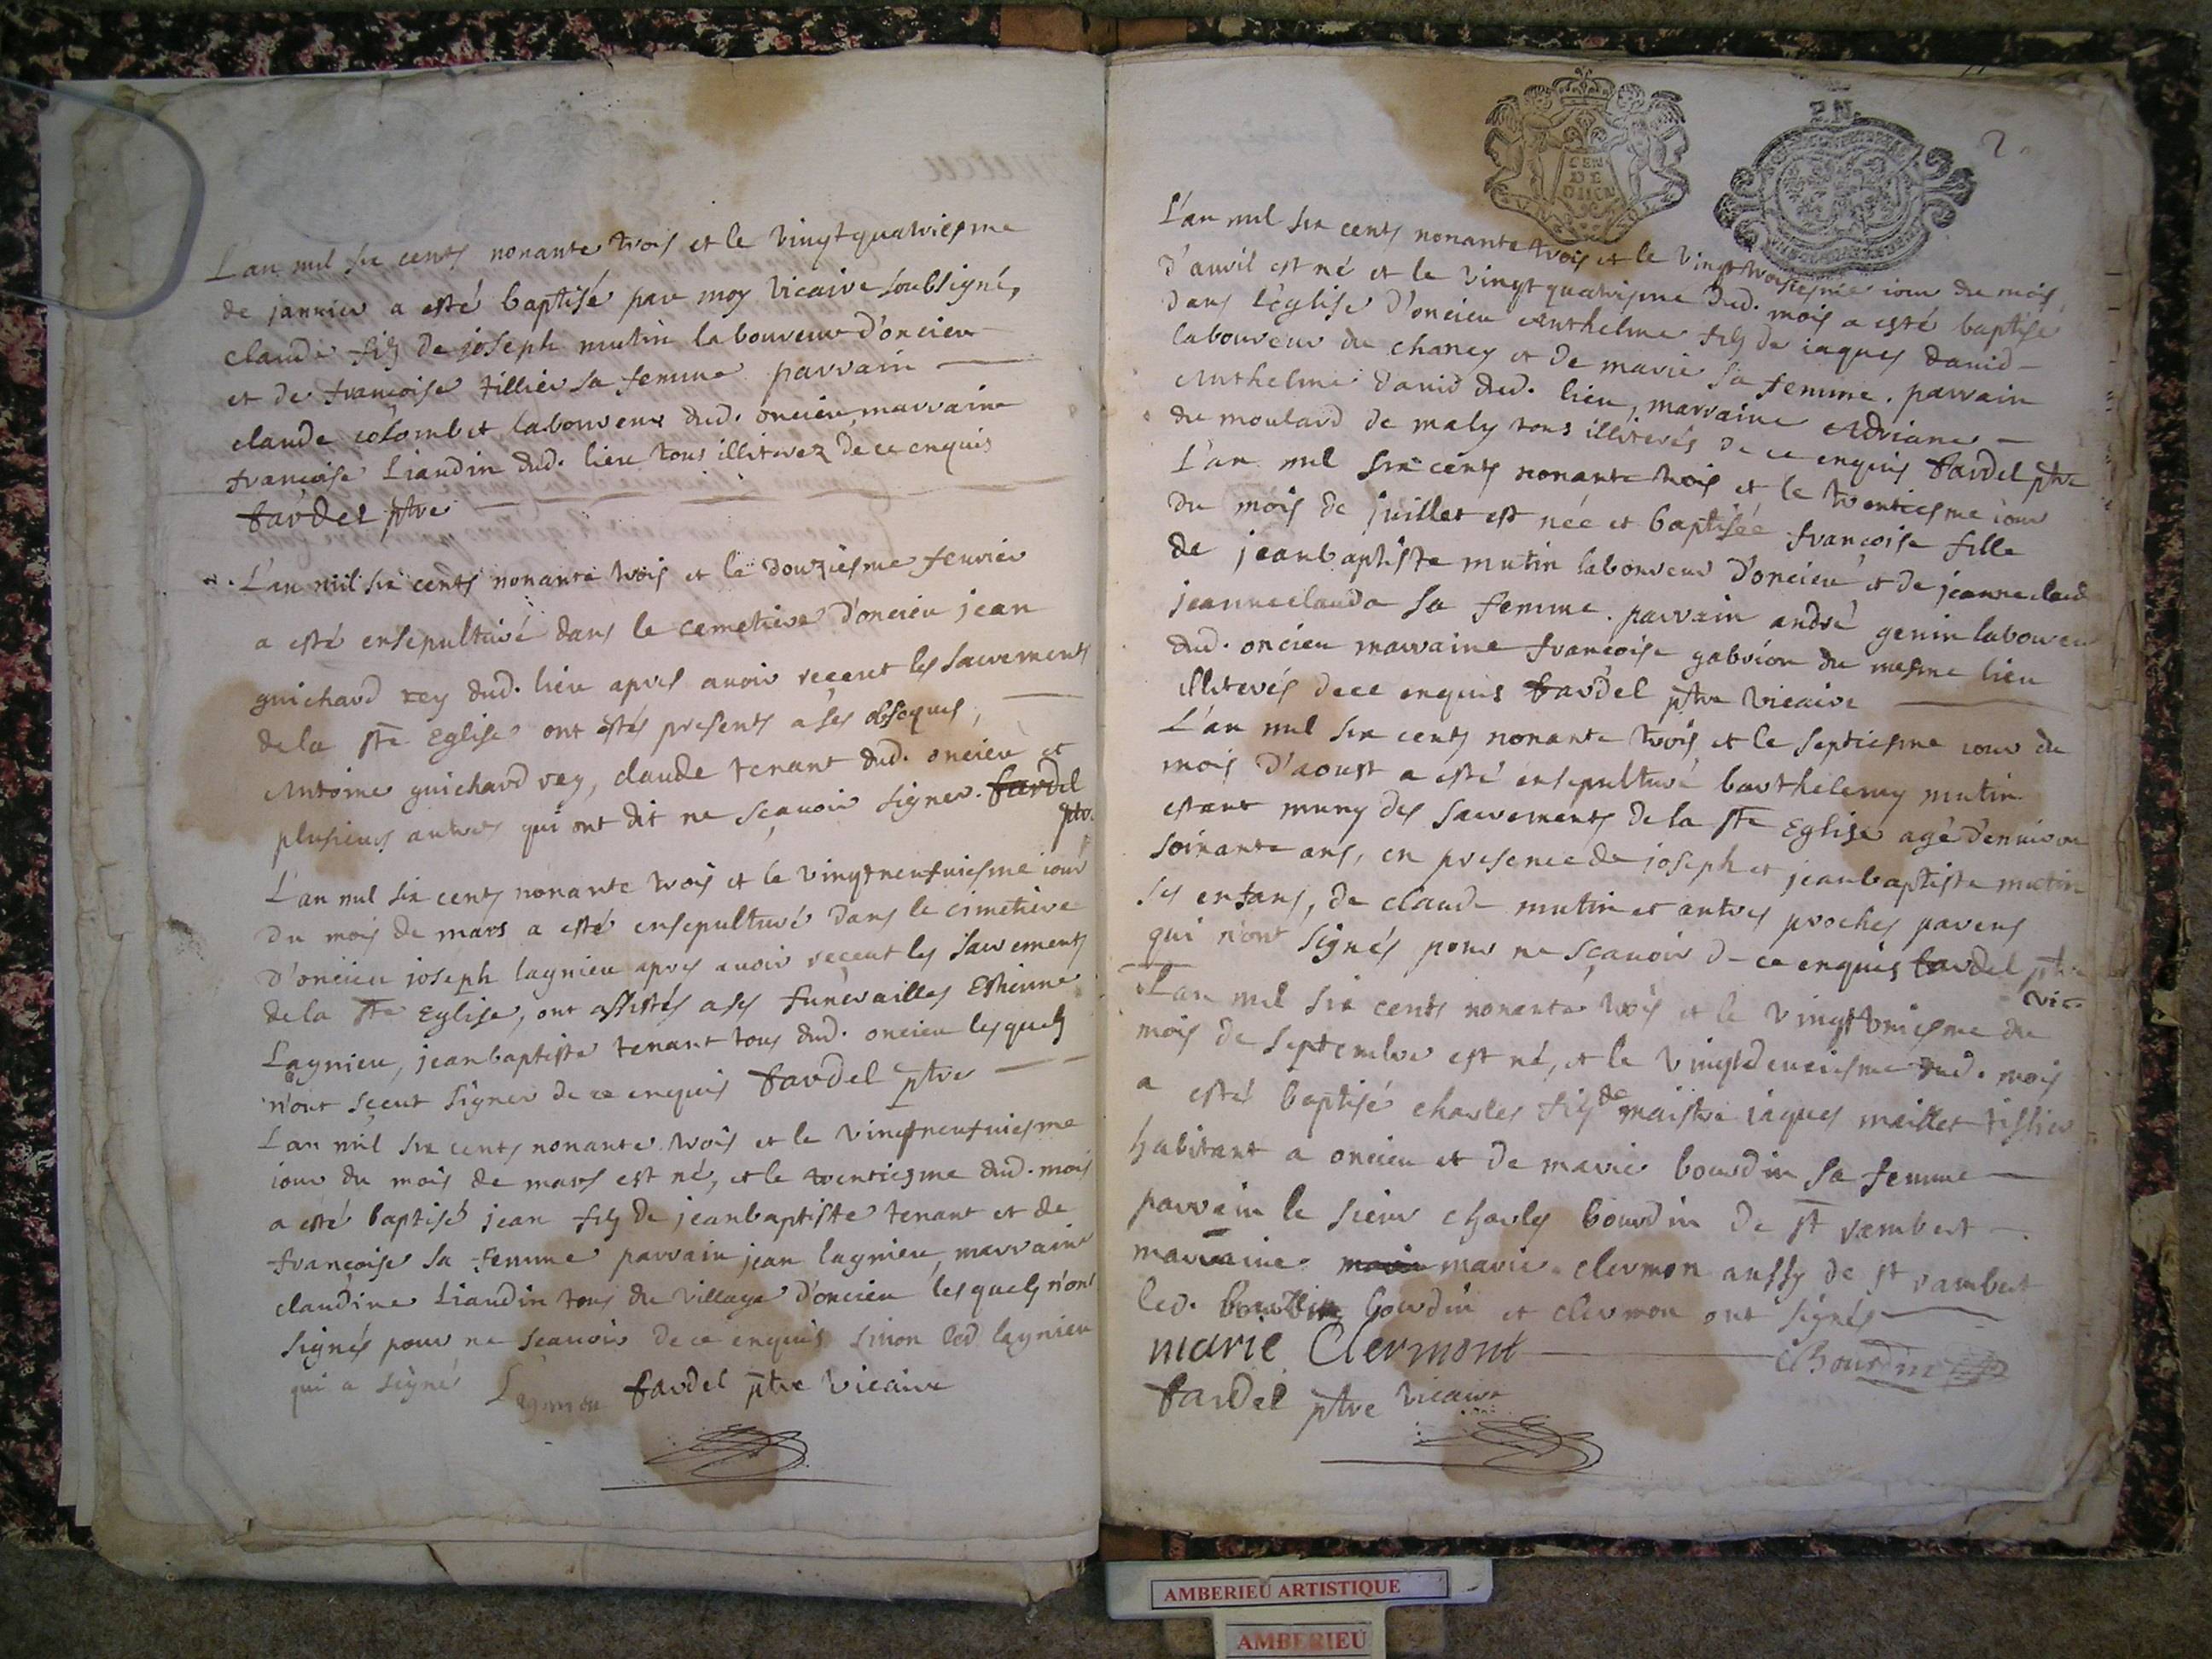 L'an mil six cents nonante trois et le vingtquatriesme
de janvier a esté baptisé par moy vicaire soubsigné,
claude fils de joseph mutin laboureur d'oncieu
et de françoise tillier sa femme parrain
claude colombet laboureur dud. oncieu, marraine
françoise Liaudin dud. lieu tous illiterez de ce enquis
fardel ptre
L'an mil six cents nonante trois et le douziesme feurier
a esté ensepulturé dans le cemetiere d'oncieu jean
guichard rey dud. lieu apres auoir receut les sacrements
de la ste Eglise ont estés presents a ses obseques,
Antoine guichard rey, claude tenant dud. oncieu et
plusieurs autres qui ont dit ne sçauoir signer. fardel
ptre
L'an mil six cents nonante trois et le vingtneufuiesme iour
du mois de mars a esté ensepulturé dans le cimetiere
d'oncieu joseph lagnieu apres auoir receut les sacrements
de la ste Eglise, ont assistés a ses funerailles Estienne
Lagnieu, jeanbaptiste tenant tous dud. oncieu lesquels
n'ont sçeut signer de ce enquis fardel ptre
L'an mil six cents nonante trois et le vingtneufuiesme
iour du mois de mars est né, et le trentiesme dud. mois
a esté baptisé jean fils de jeanbaptiste tenant et de
françoise sa femme parrain jean lagnieu, marraine
claudine Liaudin tous du village d'oncieu lesquels n'ont
signés pour ne scauoir de ce enquis sinon led lagnieu
qui a signé Lagnieu fardel ptre vicaire
2
CEN
DE
L'an mil six cents nonante trois et le vingt troisiesme iour du mois
d'auril est né et le vingt quatrisme dud. mois a esté baptisé
dans l'église d'oncieu Anthelme fils de iaques dauid
laboureur du chaney et de marie sa femme. parrain
Anthelme dauid dud. lieu, marraine Adriane
du moulard de maly tous illiterés de ce enquis fardel ptre
L'an mil six cents nonante trois et le trentiesme iour
du mois de juillet est née et baptisée françoise fille
de jeanbaptiste mutin laboureur d'oncieu et de jeanneclaude
jeanneclauda sa femme. parrain andré genin laboureur
dud. oncieu marraine françoise gabrion du mesme lieu
illiterés de ce enquis fardel ptre vicaire
L'an mil six cents nonante trois et le septiesme iour du
mois d'aoust a esté ensepulturé barthelemy mutin
estant muny des sacrements de la ste Eglise agé d'enuiron
soixante ans, en presence de joseph et jeanbaptiste mutin
ses enfans, de claude mutin et autres proches parens
qui n'ont signés pour ne sçauoir de ce enquis fardel ptre
vic.
L'an mil six cents nonante trois et le vingtvniesme du
mois de septembre est né, et le vingtdeuxiesme dud. mois
a esté baptisé charles fils de maistre iaques maillet tissier
habitant a oncieu et de marie bourdin sa femme
parrain le sieur charles bourdin de st rambert
marraine marie clermon aussy de st rambert
led. bourdin et clermon ont signés
marie Clermont CBourdin
fardel ptre vicaire
AMBERIEU ARTISTIQUE
AMBERIEU